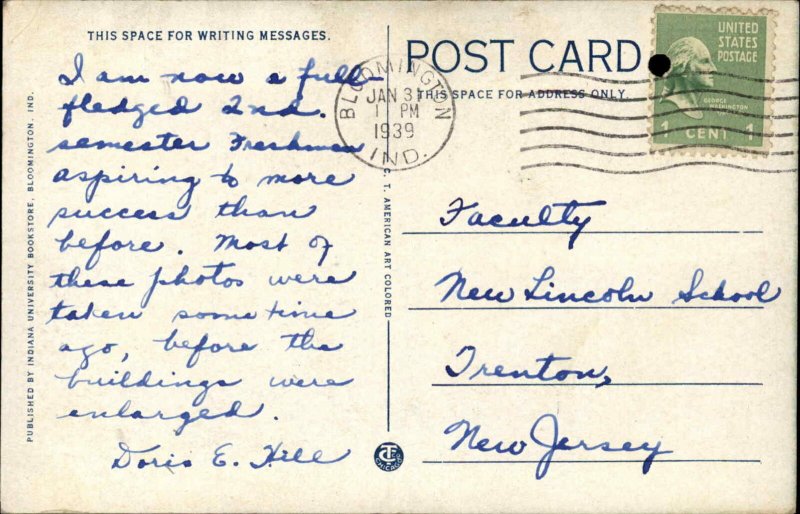 THIS SPACE FOR WRITING MESSAGES.
I am now a full-
fledged 2nd.
semester Freshman
aspiring to more
success than
before. Most of
these photos were
taken some time
ago, before the
buildings were
enlarged.
Doris E. Hill
PUBLISHED BY INDIANA UNIVERSITY BOOKSTORE, BLOOMINGTON, IND.
C. T. AMERICAN ART COLORED
POST CARD
THIS SPACE FOR ADDRESS ONLY.
BLOOMINGTON
JAN 31
1 PM
1939
IND.
UNITED
STATES
POSTAGE
GEORGE
WASHINGTON
1 CENT 1
Faculty
New Lincoln School
Trenton,
New Jersey
CHICAGO